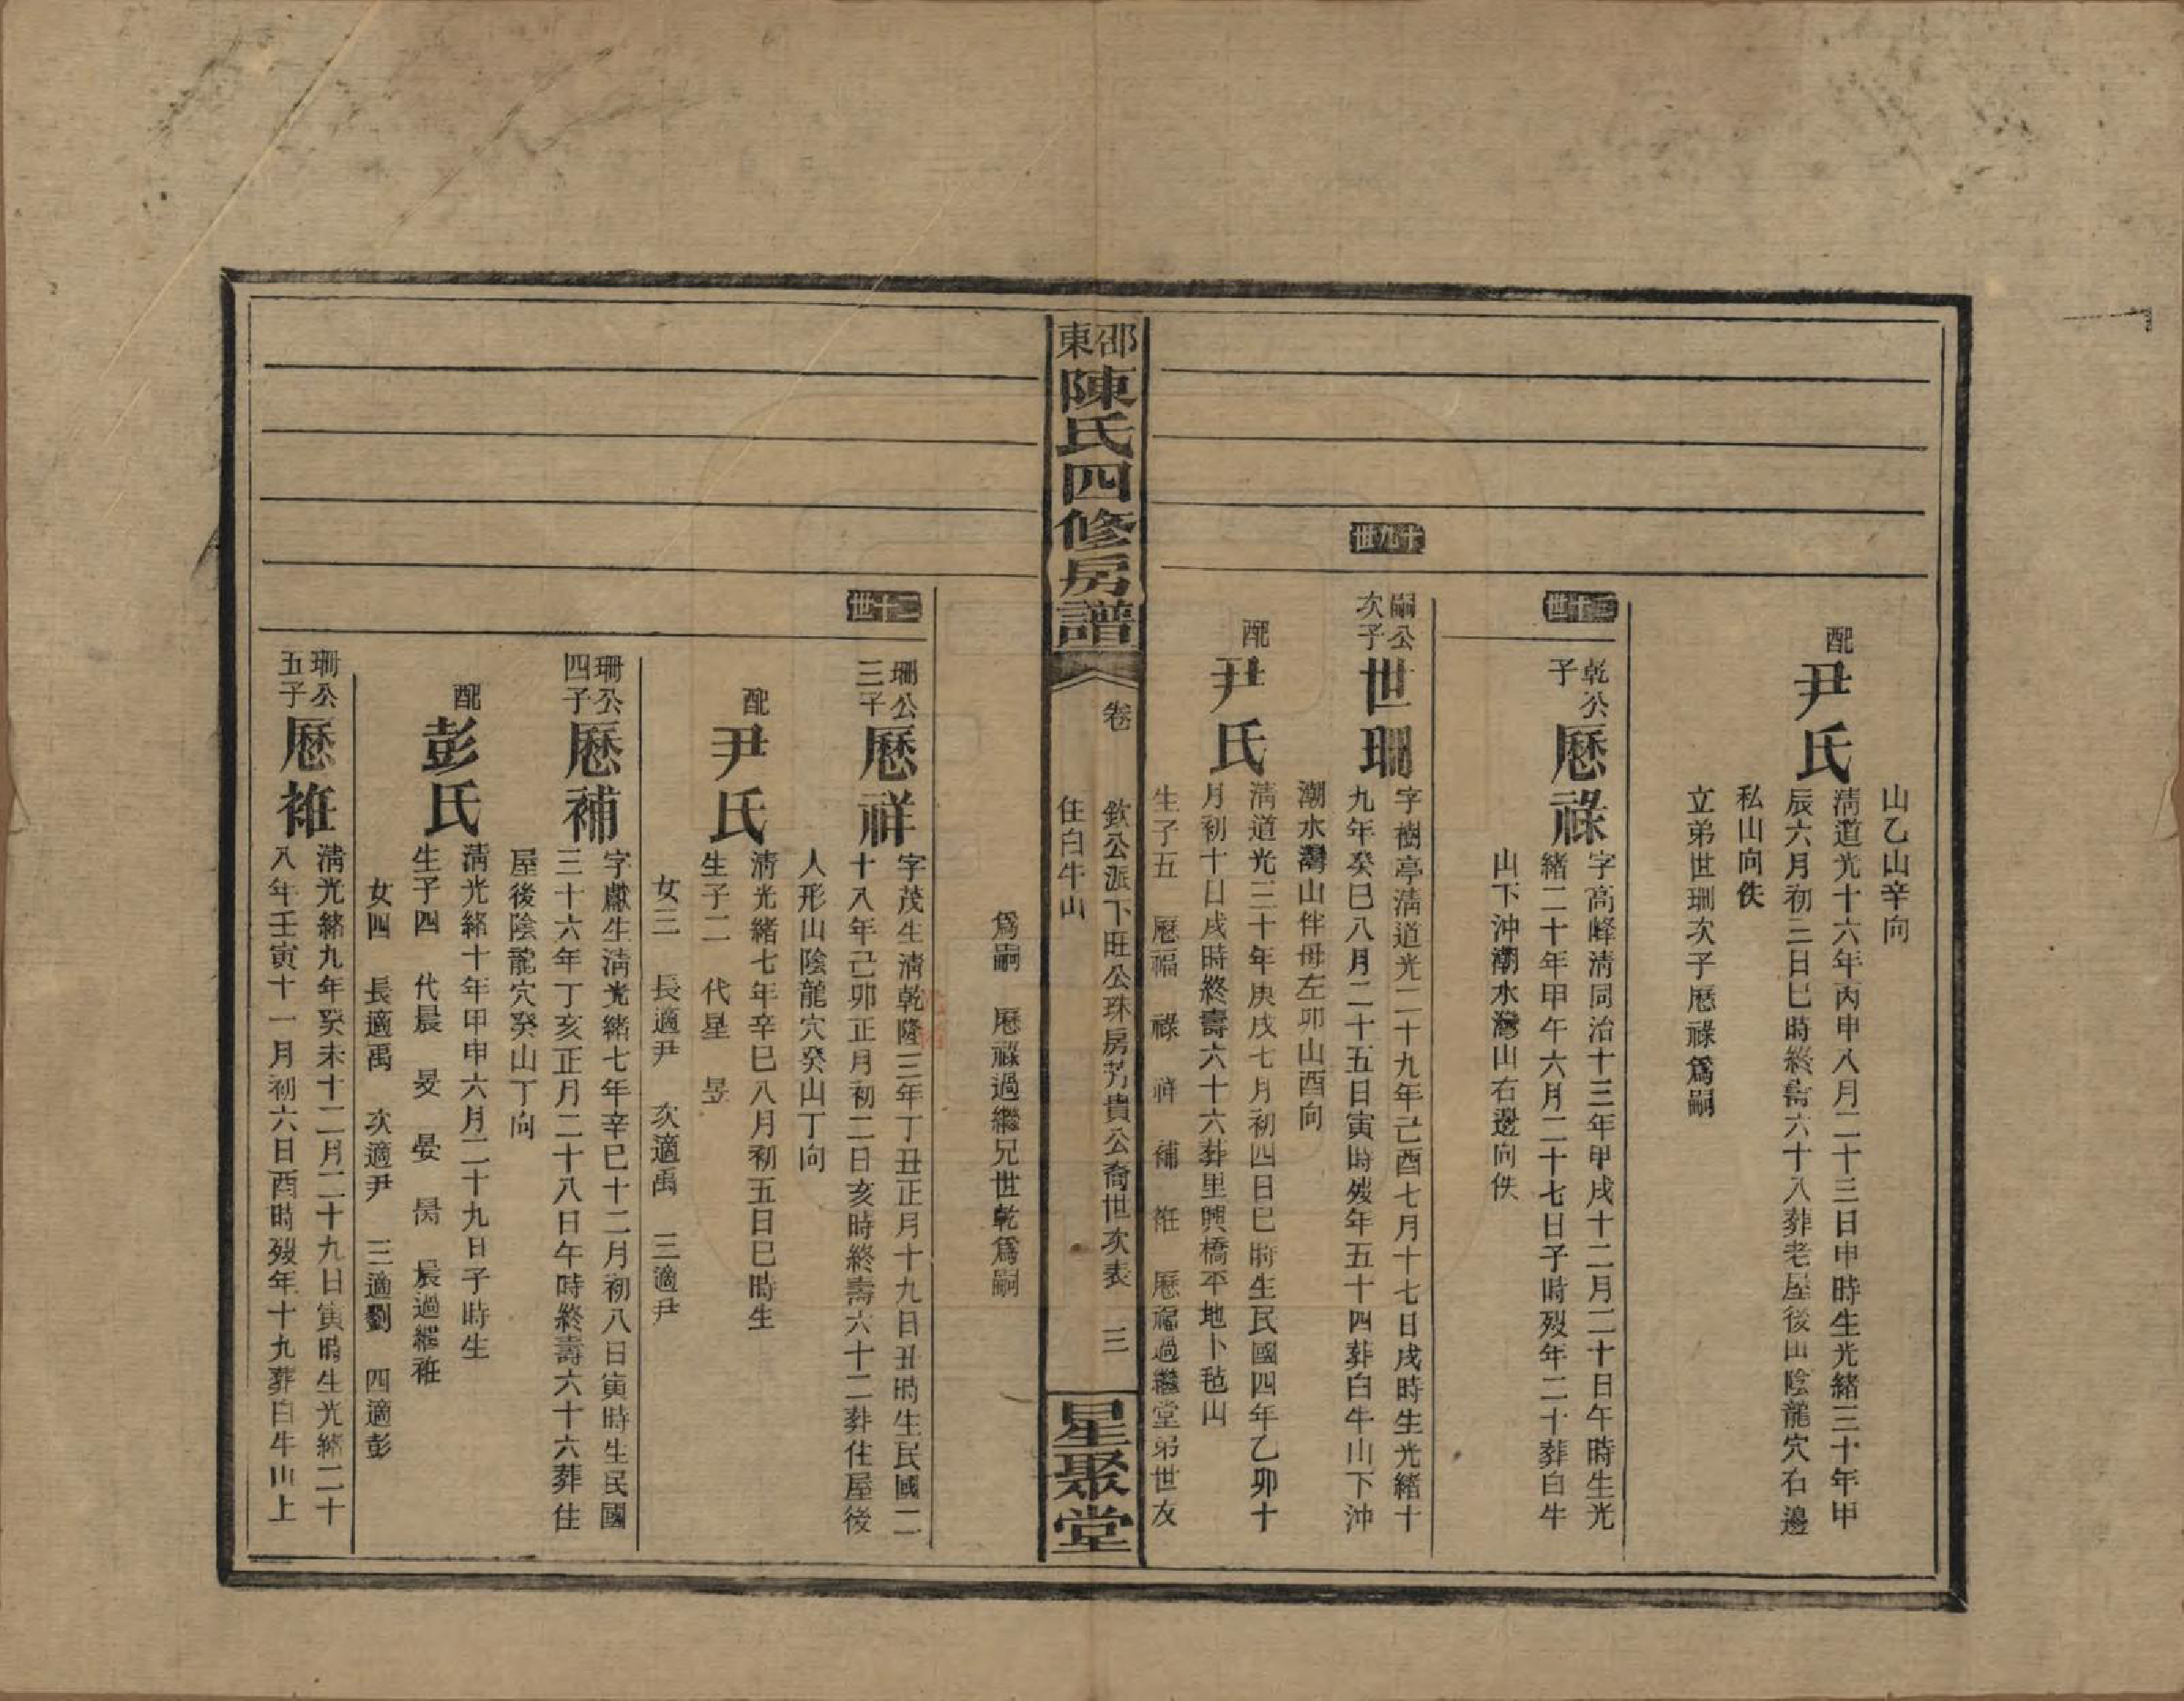 山乙山辛向
配
尹氏
清道光十六年丙申八月二十三日申時生光緒三十年甲
辰六月初三日巳時終壽六十八葬老屋後山陰龍穴右邊
私山向佚
立弟世珊次子厯祿爲嗣
二十世
乾公
子
厯祿
字高峰清同治十三年甲戌十二月二十日午時生光
緒二十年甲午六月二十七日子時歿年二十葬白牛
山下沖潮水灣山右邊向佚
十九世
嗣公
次子
世珊
字樹亭清道光二十九年己酉七月十七日戌時生光緒十
九年癸巳八月二十五日寅時歿年五十四葬白牛山下沖
潮水灣山伴母左卯山酉向
配
尹氏
清道光三十年庚戌七月初四日巳時生民國四年乙卯十
月初十日戌時終壽六十六葬里興橋平地卜毡山
生子五 厯福 祿 祥 補 袵 厯福過繼堂弟世友
邵東
陳氏四修房譜
卷
欽公派下旺公珠房芳貴公裔世次表 三
住白牛山
星聚堂
爲嗣 厯祿過繼兄世乾爲嗣
二十世
珊公
三子
厯祥
字茂生清乾隆三年丁丑正月十九日丑時生民國二
十八年己卯正月初二日亥時終壽六十二葬住屋後
人形山陰龍穴癸山丁向
配
尹氏
清光緒七年辛巳八月初五日巳時生
生子二 代星 昱
女三 長適尹 次適禹 三適尹
珊公
四子
厯補
字獻生清光緒七年辛巳十二月初八日寅時生民國
三十六年丁亥正月二十八日午時終壽六十六葬住
屋後陰龍穴癸山丁向
配
彭氏
清光緒十年甲申六月二十九日子時生
生子四 代晨 旻 晏 昺 晨過繼袵
女四 長適禹 次適尹 三適劉 四適彭
珊公
五子
厯袵
清光緒九年癸未十二月二十九日寅時生光緒二十
八年壬寅十一月初六日酉時歿年十九葬白牛山上